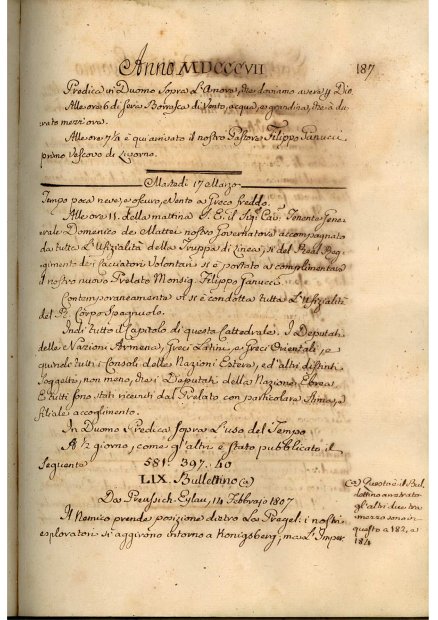 Anno MDCCCVII
187
Predica in Duomo Sopra L'Amore, che doviamo avere a Dio.
Alle ore 6 di sera Borrasca di Vento, acqua, e grandine, che à du-
rato mezz'ora.
Alle ore 7½ è qui arrivato il nostro Pastore Filippo Ganucci
primo Vescovo di Livorno.
Martedì 17 Marzo
Tempo poca neve, e oscuro, e Vento a Greco freddo.
Alle ore 11. della mattina S. E. il Sigr. Cav. Tenente Gene-
rale Domenico de Mattei nostro Governatore accompagnato
da tutta L'Ufizialità della Truppa di Linea, e del Real Reg-
gimento de' Cacciatori Volontari si è portato a complimentare
il nostro nuovo Prelato Monsig. Filippo Ganucci.
Contemporaneamente vi si è condotta tutta L'Ufizialità
del Rl. Corpo Spagnuolo.
Indi tutto il Capitolo di questa Cattedrale. I Deputati
delle Nazioni Armena, Greci Latini, e Greci Orientali, e
quindi tutti i Consoli delle Nazioni Estere, ed altri distinti
Soggetti, non meno, che i Deputati della Nazione Ebrea
E tutti sono stati ricevuti dal Prelato con particolare stima, e
filiale accoglimento.
In Duomo Predica sopra L'uso del Tempo
A ½ giorno, come gl'altri è stato pubblicato il
Seguente 581. 397. 40
LIX. Bullettino (a)
Da Preussich-Eylau, 14 Febbrajo 1807
Il Nemico prende posizione dietro La Pregel: i nostri
esploratori si aggirono intorno a Konigsberg, ma L'Imper
(a) Questo è il Bul-
lettino
gl'altri due
mezzo sono in
questo a 182, a
184